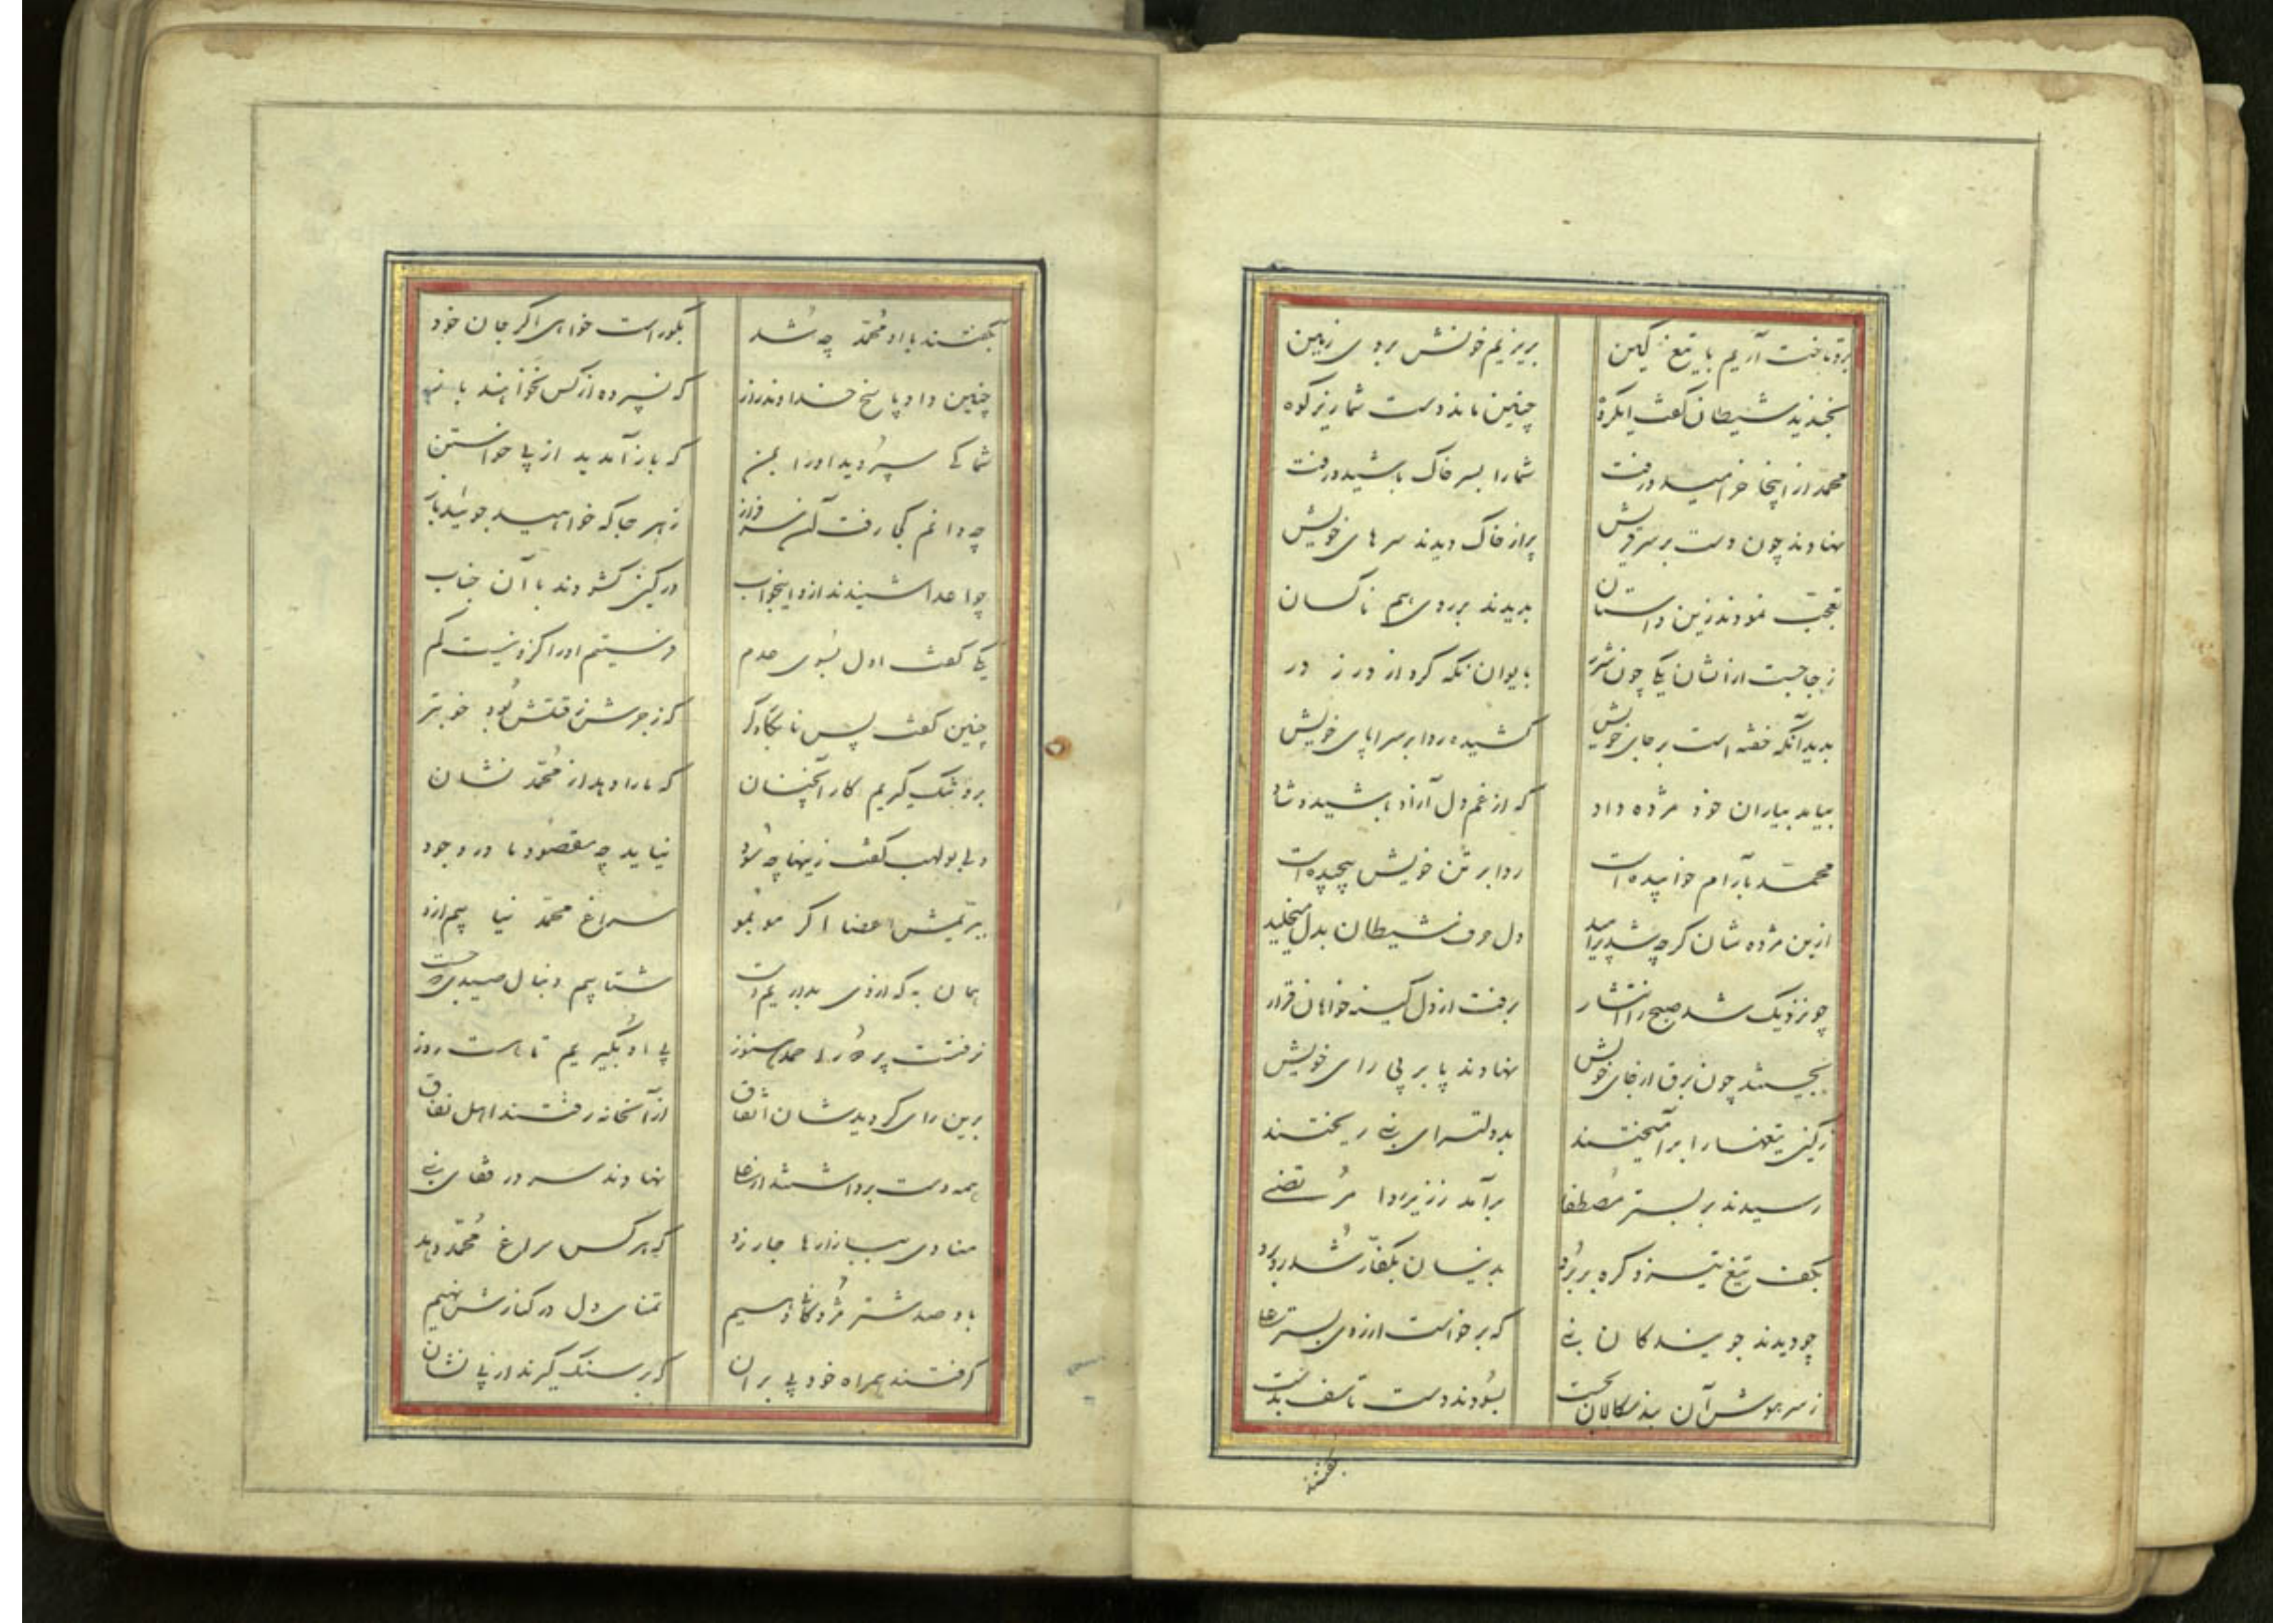 برو تاخت آریم با تیغ کین بریزیم خونش بروی زمین
بخندید شیطان گفت ای گروه چنین ماند دست شما زیر کوه
محمد از اینجا خرامید و رفت شما را بسر خاک پاشید و رفت
نهادند چون دست بر سر ز پیش پر از خاک دیدند سرهای خویش
تعجب نمودند زین داستان بدیدند بر روی هم ناکسان
ز جا جست ازیشان یکی چون شرر بایوان نگه کرد از درز در
بدید آنکه خفته است بر جای خویش کشیده ردا بر سراپای خویش
بیامد بیاران خود مژده داد که از غم دل آزاد باشید و شاد
محمد بآرام خوابیده است ردا بر تن خویش پیچیده است
ازین مژده شان گرچه شد پر امید ولی حرف شیطان بدل میخلید
چو نزدیک شد صبح را انتشار برفت از دل کینه خواهان قرار
بجستند چون برق از جای خویش نهادند پا بر پی رای خویش
ز کین تیغها را برآمیختند بدولتسرای نبی ریختند
رسیدند بر بستر مصطفا برآمد ز زیر ردا مرتضی
بکف تیغ تیز و گره بر برو بدینسان بکفار شد روبرو
چو دیدند جویندگان نبی که برخواست از روی بستر علی
ز سر هوش آن بدسکالان بجست بسودند دست تاسف بدست
بگفتند
بگفتند با او محمد چه شد بگو راست خواهی اگر جان خود
چنین داد پاسخ خداوند راز که نسپرده از کس نخواهند باز
شما کی سپردید او را بمن که باز آمدید از پی خواستن
چه دانم کجا رفت آن سرفراز ز هر جا که خواهید جوئید باز
چو اعدا شنیدند ازو اینجواب در کین گشودند با آن جناب
یکی گفت اول بسوی عدم فرستیم او را کزو نیست کم
چنین گفت پس نابکار دگر که زجرش ز قتلش بود خوبتر
برو تنگ گیریم کار آنچنان که ما را دهد از محمد نشان
ولی بولهب گفت زینها چه سود نیاید چه مقصود ما در وجود
ببریمش اعضا اگر مو بمو سراغ محمد نیابیم ازو
همان به که از وی بداریم دست شتابیم دنبال صیدی که جست
نرفتست پر راه دور هنوز پی او بگیریم تا هست روز
برین رای گردید شان اتفاق از آنخانه رفتند اهل نفاق
همه دست برداشتند از علی نهادند سر در قفای نبی
منادی ببازارها جار زد که هر کس سراغ محمد دهد
باو صد شتر مزد کانی دهیم تمنای دل در کنارش نهیم
گرفتند همراه خود پی بران که بر سنگ گیرند از پی نشان